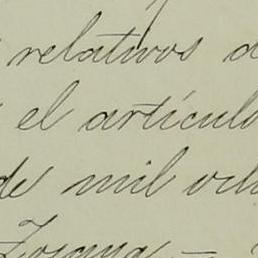 relativos d
el artículo
de mil och
Zosaya -